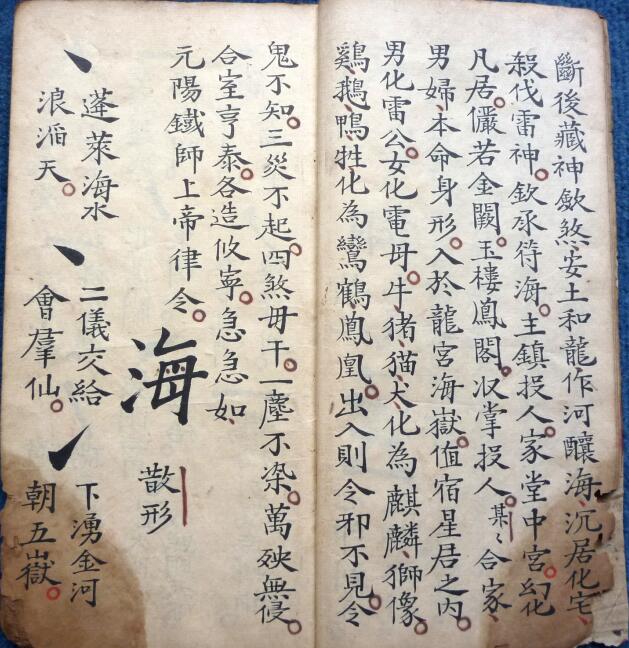 斷後、藏神歛煞、安土和龍作河釀海、沉居化宅、
殺伐雷神。欽承符海。主鎮投人家堂中宮。幻化
凡居。儼若金闕。玉樓鳳閣。収掌投人。某〻合家、
男婦、本命身形。入於龍宮海嶽。値宿星居之内。
男化雷公。女化電母。牛、猪、猫、犬、化為麒麟、獅像。
鷄、鵝、鴨、牲化為鸞鶴鳳凰。出入則令邪不見、令
鬼不知。三災不起。四煞毋干。一塵不染。萬殃無侵。
合室亨泰。各造攸寧。急急如、
元陽鐵師上帝律令。
海
散形
蓬萊海水
浪滔天。
二儀交給
會羣仙。
下湧金河
朝五嶽。